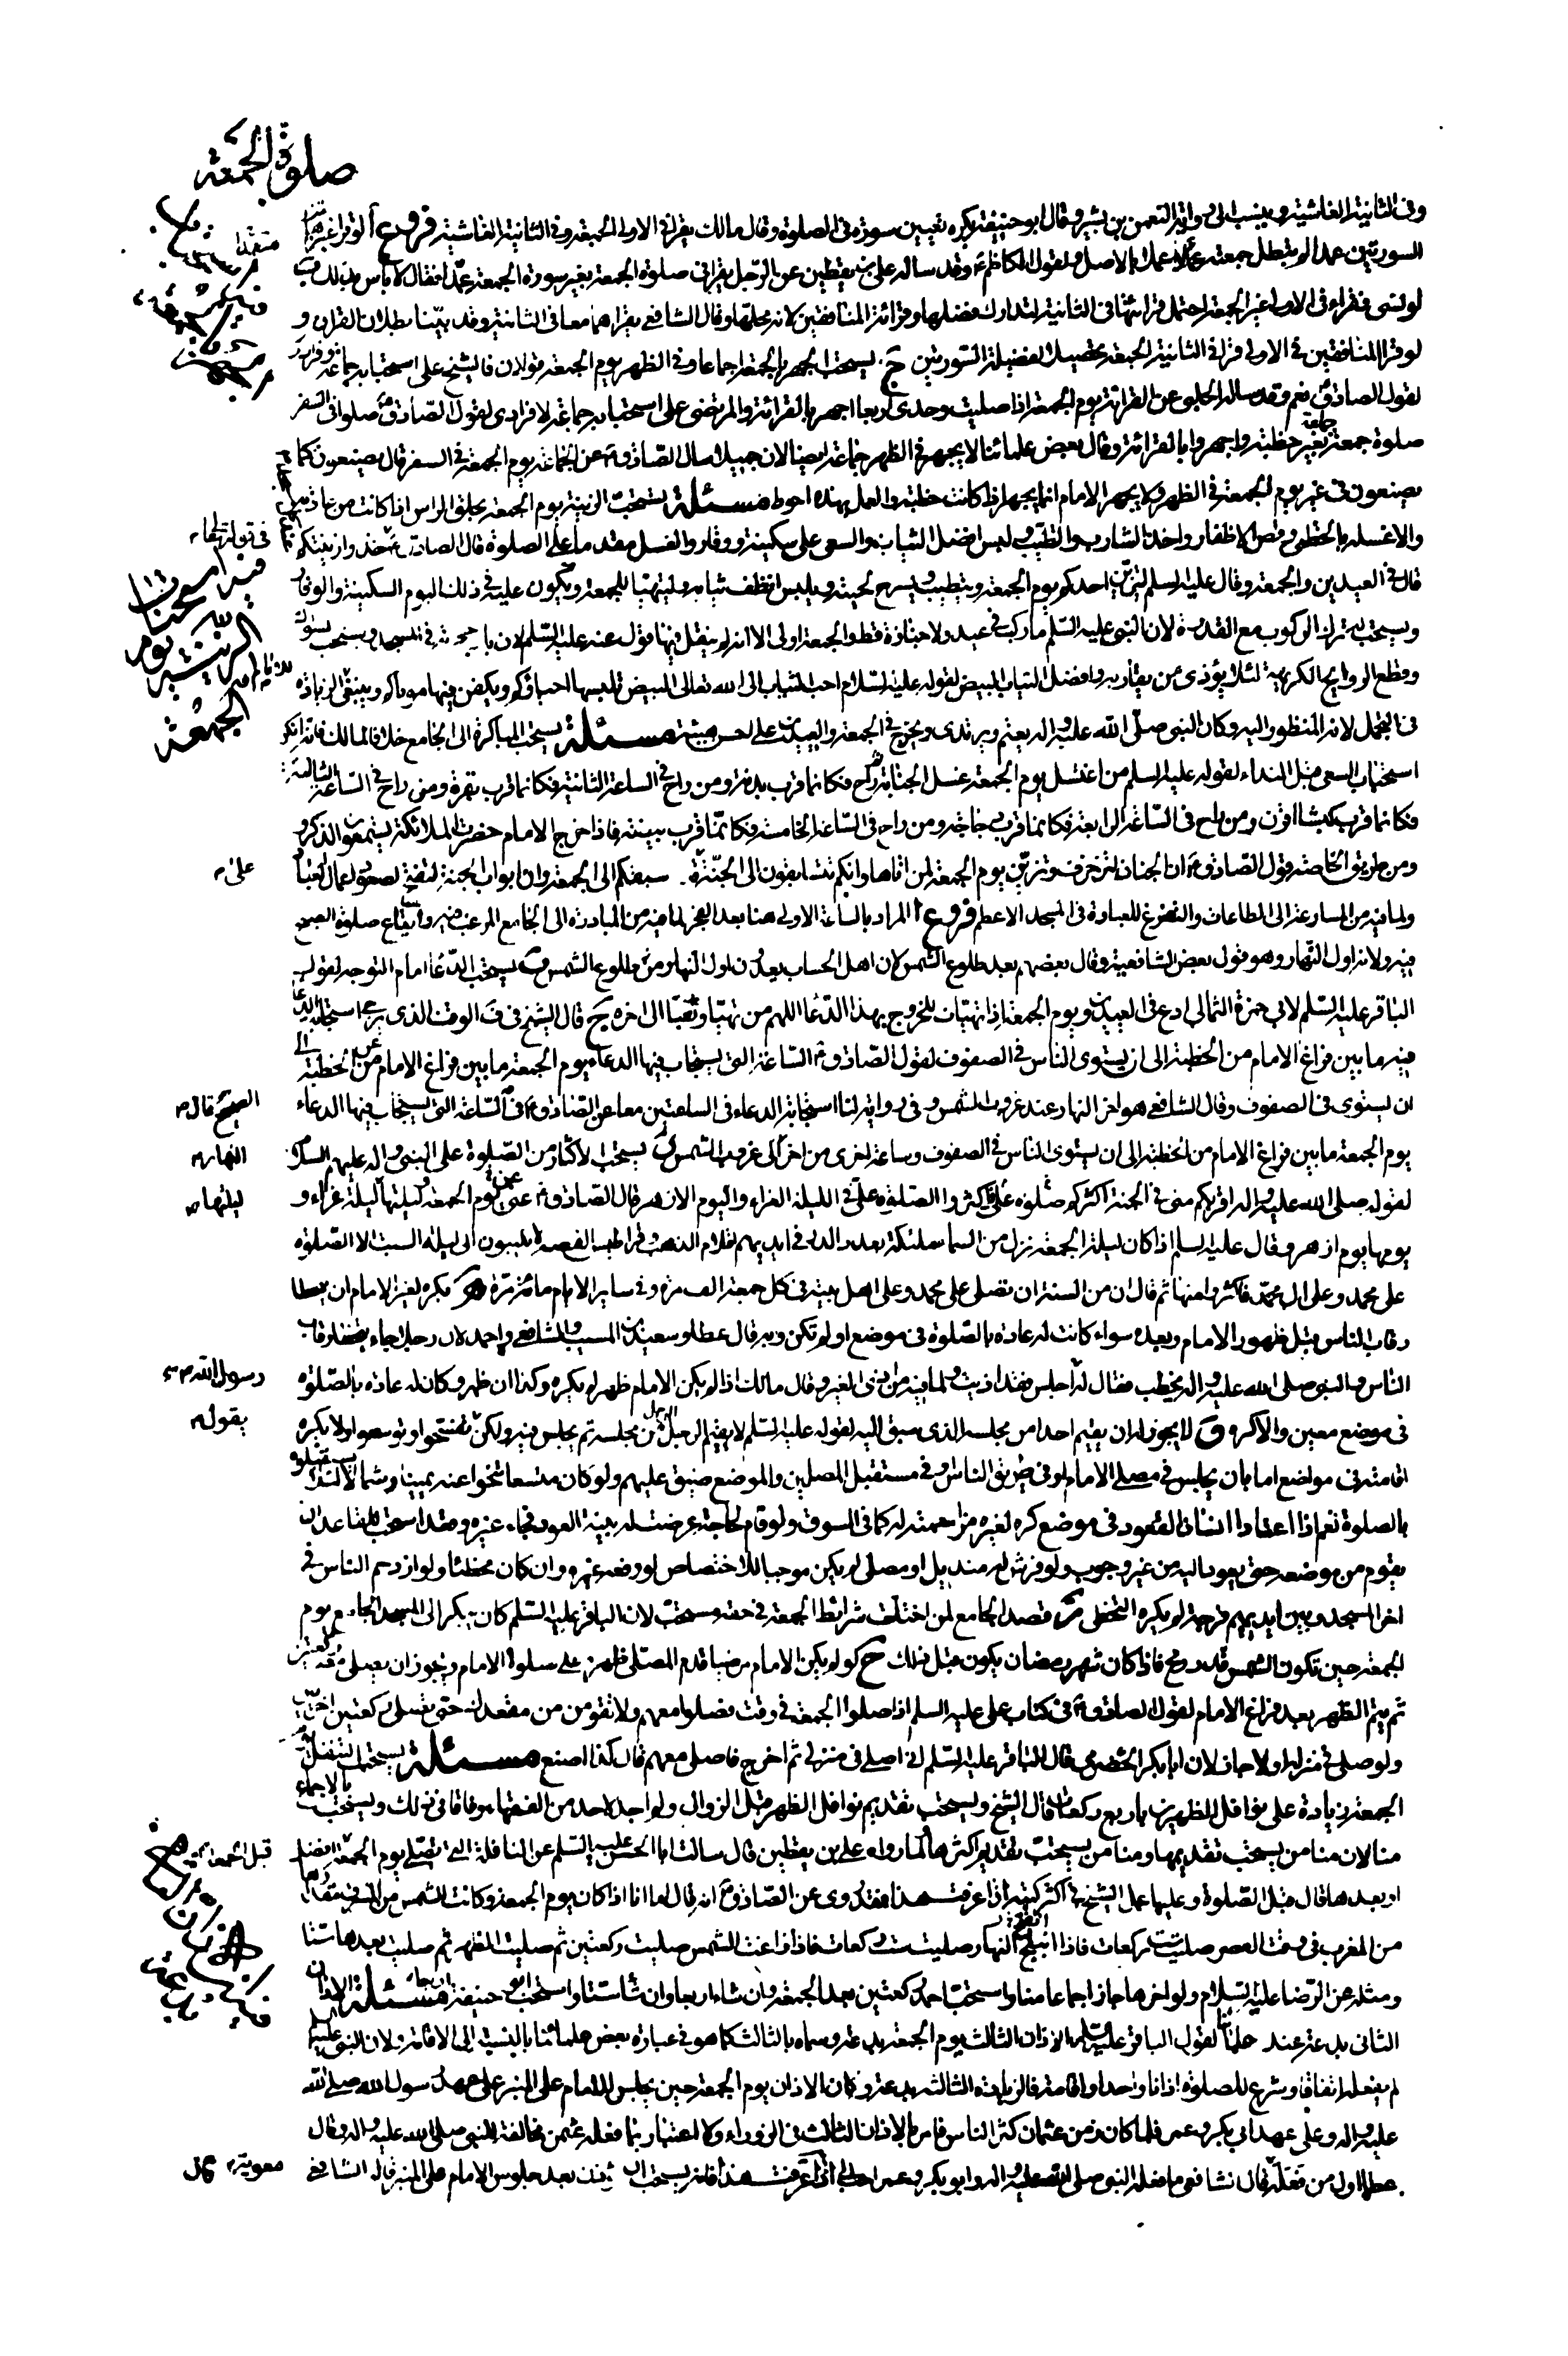 صلوة الجمعة
وفى الثانية الغاشية وينسب الى رواية النعمن بن بشير وقال ابو حنيفة يكره تعيين سورة فى الصلوة وقال مالك يقرا فى الاولى الجمعة وفى الثانية الغاشية فروع آ لو قرا غير هاتين
السورتين عمدا لم يبطل جمعته عملا بالاصل ولقول الكاظم ع وقد ساله على بن يقطين عن الرجل يقرا فى صلوة الجمعة بغير سورة الجمعة متعمدا فقال لا باس بذلك ب
لو نسى فقراء فى الاولى غير الجمعة احتمل قرائتها فى الثانية لتدارك فضلها وقرائة المنافقين لانه محلها وقال الشافعى يقراهما معا فى الثانية وقد بينا بطلان القران و
لو قرا المنافقين فى الاولى قرا فى الثانية الجمعة تحصيلا لفضيلة السورتين ج يستحب الجهر بالجمعة اجماعا وفى الظهر يوم الجمعة قولان فالشيخ على استحبابه جماعة وفرادى
لقول الصادق ع نعم وقد ساله الحلبى عن القرائة يوم الجمعة اذا صليت وحدى اربعا اجهر بالقرائة والمرتضى على استحبابه جماعة لا فرادى لقول الصادق ع صلوا فى السفر
صلوة جمعة جماعة بغير خطبة واجهروا بالقرائة وقال بعض علمائنا لا يجهر فى الظهر جماعة ايضا لان جميلا سال الصادق ع عن الجماعة يوم الجمعة فى السفر قال يصنعون كما
يصنعون فى غير يوم الجمعة فى الظهر ولا يجهر الامام انما يجهر اذا كانت خطبة والعمل بهذا احوط مسئلة يستحب الزينة يوم الجمعة بحلق الراس اذا كانت من عادته
والا غسله بالخطمى وقص الاظفار واخذ الشارب والتطيب ولبس افضل الثياب والسعى على سكينة ووقار والغسل مقدما على الصلوة قال الصادق ع فى قوله تعالى خذوا زينتكم
قال فى العيدين والجمعة وقال عليه السلم ليتزين احدكم يوم الجمعة ويتطيب ويسرح لحيته ويلبس انظف ثيابه وليتهيا للجمعة ويكون عليه فى ذلك اليوم السكينة والوقار
ويستحب له ترك الركوب مع القدرة لان النبى عليه السلم ما ركب فى عيد ولا جنازة قط والجمعة اولى الا انه لم ينقل فيها قول عنه عليه السلم لان باب حجرته فى المسجد ويستحب السواك
وقطع الروايح الكريهة لئلا يؤذى من يقاربه وافضل الثياب البيض لقوله عليه السلام احب الثياب الى الله تعالى البيض يلبسها احياؤكم ويكفن فيها موتاكم وينبغى للامام الزيادة
فى التجمل لانه المنظور اليه وكان النبى صلى الله عليه واله يعتم ويرتدى ويخرج فى الجمعة والعيدين على احسن هيئة مسئلة يستحب المباكرة الى الجامع خلافا لمالك فانه انكر
استحباب السعى قبل النداء لقوله عليه السلم من اغتسل يوم الجمعة غسل الجنابة ثم راح فكانما قرب بدنة ومن راح فى الساعة الثانية فكانما قرب بقرة ومن راح فى الساعة الثالثة
فكانما قرب كبشا اقرن ومن راح فى الساعة الرابعة فكانما قرب دجاجة ومن راح فى الساعة الخامسة فكانما قرب بيضة فاذا خرج الامام حضرت الملائكة يستمعون الذكر و
ومن طريق الخاصة قول الصادق ع ان الجنان لتزخرف وتزين يوم الجمعة لمن اتاها وانكم تتسابقون الى الجنة على قدر سبقكم الى الجمعة وان ابواب الجنة لتفتح لصعود اعمال العباد
ولما فيه من المسارعة الى الطاعات والتفرغ للعبادة فى المسجد الاعظم فروع آ المراد بالساعة الاولى هنا بعد الفجر لما فيه من المبادرة الى الجامع المرغب فيه وايقاع صلوة الصبح
فيه ولانه اول النهار وهو قول بعض الشافعية وقال بعضهم بعد طلوع الشمس لان اهل الحساب يعدون اول النهار من طلوع الشمس ب يستحب الدعاء امام التوجه لقول
الباقر عليه السلم لابى حمزة الثمالى ادع فى العيدين ويوم الجمعة اذا تهيات للخروج بهذا الدعاء اللهم من تهيا وتعبا الى اخره ج قال الشيخ فى ف الوقت الذى يرجى استجابة الدعاء
فيه ما بين فراغ الامام من الخطبة الى ان يستوى الناس فى الصفوف لقول الصادق ع الساعة التى يستجاب فيها الدعاء يوم الجمعة ما بين فراغ الامام من الخطبة الى
ان يستوى فى الصفوف وقال الشافعى هو اخر النهار عند غروب الشمس وفى رواية لنا استجابة الدعاء فى الساعتين معا عن الصادق ع فى الصحيح قال الساعة التى يستجاب فيها الدعاء
يوم الجمعة ما بين فراغ الامام من الخطبة الى ان يستوى الناس فى الصفوف وساعة اخرى من اخر النهار الى غروب الشمس د يستحب الاكثار من الصلوة على النبى واله عليهم السلام
لقوله صلى الله عليه واله اقربكم منى فى الجنة اكثركم صلوة على فاكثروا الصلوة على فى الليلة الغراء واليوم الازهر قال الصادق ع يوم الجمعة وليلتها ليلتها ليلة غراء و
يومها يوم ازهر وقال عليه السلم اذا كان ليلة الجمعة نزل من السماء ملئكة بعدد الذر فى ايديهم اقلام الذهب وقراطيس الفضة لا يكتبون الى ليلة السبت الا الصلوة
على محمد وعلى ال محمد فاكثروا منها ثم قال ان من السنة ان تصلى على محمد وعلى اهل بيته فى كل جمعة الف مرة وفى ساير الايام مائة مرة ه يكره لغير الامام ان يتخطا
رقاب الناس قبل ظهور الامام وبعده سواء كانت له عادة بالصلوة فى موضع او لم تكن وبه قال عطا وسعيد بن المسيب والشافعى واحمد لان رجلا جاء يتخطا رقاب
الناس والنبى صلى الله عليه واله يخطب فقال له رسول الله ص اجلس فقد اذيت ولما فيه من اذى الغير وقال مالك اذا لم يكن الامام ظهر لم يكره وكذا ان ظهر وكان له عادة بالصلوة
فى موضع معين والا كره و لا يجوز له ان يقيم احدا من مجلسه الذى سبق اليه لقوله عليه السلم لا يقيم الرجل الرجل من مجلسه ثم يجلس فيه ولكن يقول تفسحوا وتوسعوا ولا يكره
اقامته فى مواضع اما بان يجلس فى مصلى الامام او فى طريق الناس او فى مستقبل المصلين والموضع ضيق عليهم ولو كان متسعا تنحوا عنه يمينا وشمالا
بالصلوة نعم اذا اعتاد انسان القعود فى موضع كره لغيره مزاحمته له كما فى السوق ولو قام لحاجة عرضت له بنية العود فجاء غيره وقعد استحب للقاعد ان
يقوم من موضعه حتى يعود اليه من غير وجوب ولو فرش له منديل او مصلى لم يكن موجبا للاختصاص لو رفعه غيره وان كان مخطئا ولو ازدحم الناس فى
اخر المسجد وبين ايديهم فرجة لم يكره التخطى ز قصد الجامع لمن اختلت شرائط الجمعة فى حقه مستحب لان الباقر عليه السلم كان يبكر الى المسجد الجامع يوم
الجمعة حين تكون الشمس قدر رمح فاذا كان شهر رمضان يكون قبل ذلك ح لو لم يكن الامام مرضيا قدم المصلى ظهره على صلوة الامام ويجوز ان يصلى معه ركعتين
ثم يتم الظهر بعد فراغ الامام لقول الصادق ع فى كتاب على عليه السلم اذا صلوا الجمعة فى وقت فصلوا معهم ولا تقومن من مقعدك حتى تصلى ركعتين اخريين
ولو صلى فى منزله اولا جاز لان ابا بكر الحضرمى قال للباقر عليه السلم انى اصلى فى منزلى ثم اخرج فاصلى معهم قال كذا اصنع مسئلة يستحب التنفل يوم
الجمعة زيادة على نوافل الظهرين باربع ركعات قال الشيخ ويستحب تقديم نوافل الظهر قبل الزوال ولم اجد لاحد من الفقهاء وفاقا فى ذلك ويستحب بالاجماع
منا لان منا من يستحب تقديمها ومنا من يستحب تقديم اكثرها لما رواه على بن يقطين قال سالت ابا الحسن عليه السلم عن النافلة التى تصلى يوم الجمعة قبل الجمعة افضل
او بعدها قال قبل الصلوة وعليها عمل الشيخ فى اكثر كتبه اذا عرفت هذا فقد روى عن الصادق ع انه قال اما انا اذا كان يوم الجمعة وكانت الشمس من المشرق مقدارها
من المغرب فى وقت العصر صليت ست ركعات فاذا انتفخ النهار صليت ست ركعات فاذا زاغت الشمس صليت ركعتين ثم صليت الظهر ثم صليت بعدها ستا
ومثله عن الرضا عليه السلام ولو اخرها جاز اجماعا منا واستحب احمد ركعتين بعد الجمعة وان شاء اربعا وان شاء ستا واستحب ابو حنيفة اربعا مسئلة الاذان
الثانى بدعة عند علمائنا لقول الباقر عليه السلم الاذان الثالث يوم الجمعة بدعة وسماه بالثالث كما هو فى عبارة بعض علمائنا بالنسبة الى الاقامة ولان النبى عليه السلم
لم يفعله اتفاقا وشرع للصلوة اذانا واحدا واقامة فالزيادة الثالثة بدعة وكان الاذان يوم الجمعة حين يجلس الامام على المنبر على عهد رسول الله صلى الله
عليه واله وعلى عهد ابى بكر وعمر فلما كان زمن عثمان كثر الناس فامر بالاذان الثالث فى الزوراء ولا اعتبار بما فعله عثمن مخالفة للنبى صلى الله عليه واله وقال
عطا اول من فعله معوية قال الشافعى ما فعله النبى صلى الله عليه واله وابو بكر وعمر احب الى اذا عرفت هذا فانه يستحب ان يؤذن بعد جلوس الامام على المنبر قاله الشافعى